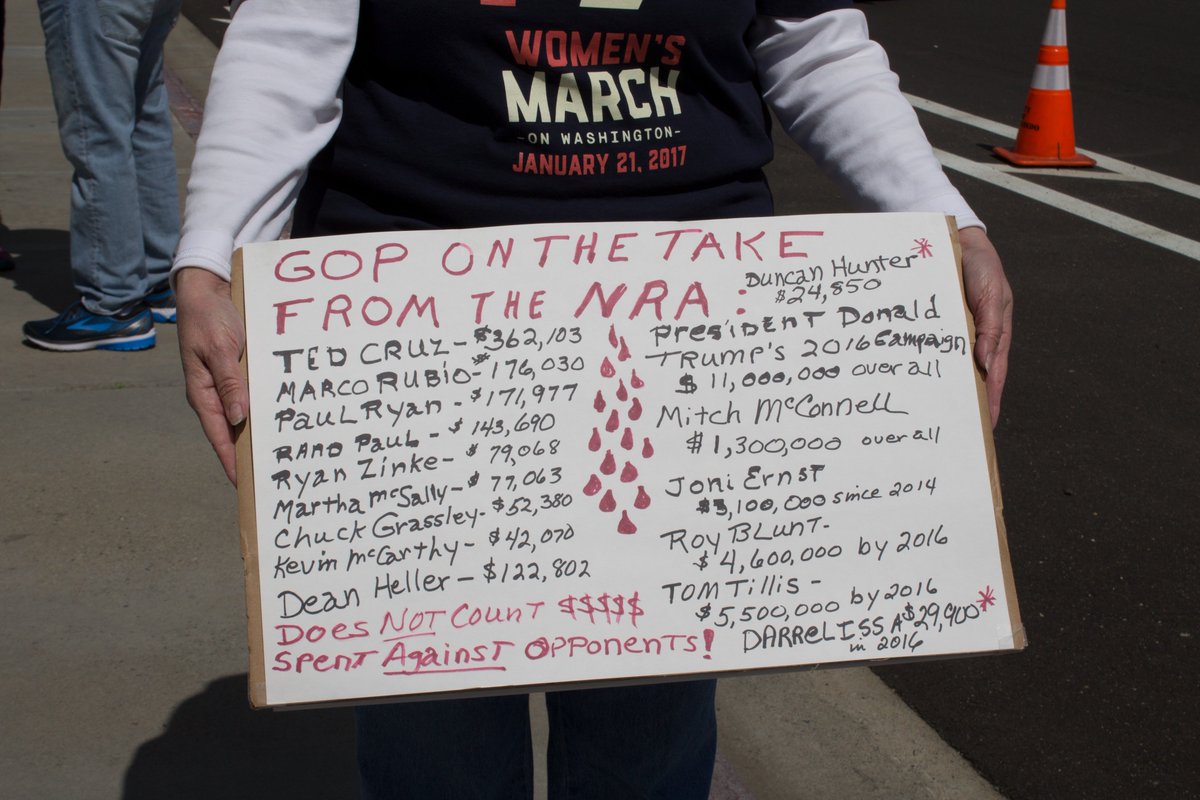 WOMEN'S
MARCH
-ON WASHINGTON-
JANUARY 21, 2017
GOP ON THE TAKE
FROM THE NRA:
TED CRUZ - $362,103
MARCO RUBIO - $176,030
PAUL RYAN - $171,977
RAND PAUL - $143,690
Ryan Zinke - $79,068
Martha McSally - $77,063
Chuck Grassley - $52,380
Kevin McCarthy - $42,070
Dean Heller - $122,802
DOES NOT COUNT $$$$$
SPENT Against OPPONENTS!
Duncan Hunter*
$24,850
PRESIDENT Donald
Trump's 2016 Campaign
$11,000,000 over all
Mitch McConnell
$1,300,000 over all
Joni Ernst
$3,100,000 since 2014
Roy BLunt-
$4,600,000 by 2016
TOM TILLIS -
$5,500,000 by 2016
DARREL ISSA $29,900*
in 2016